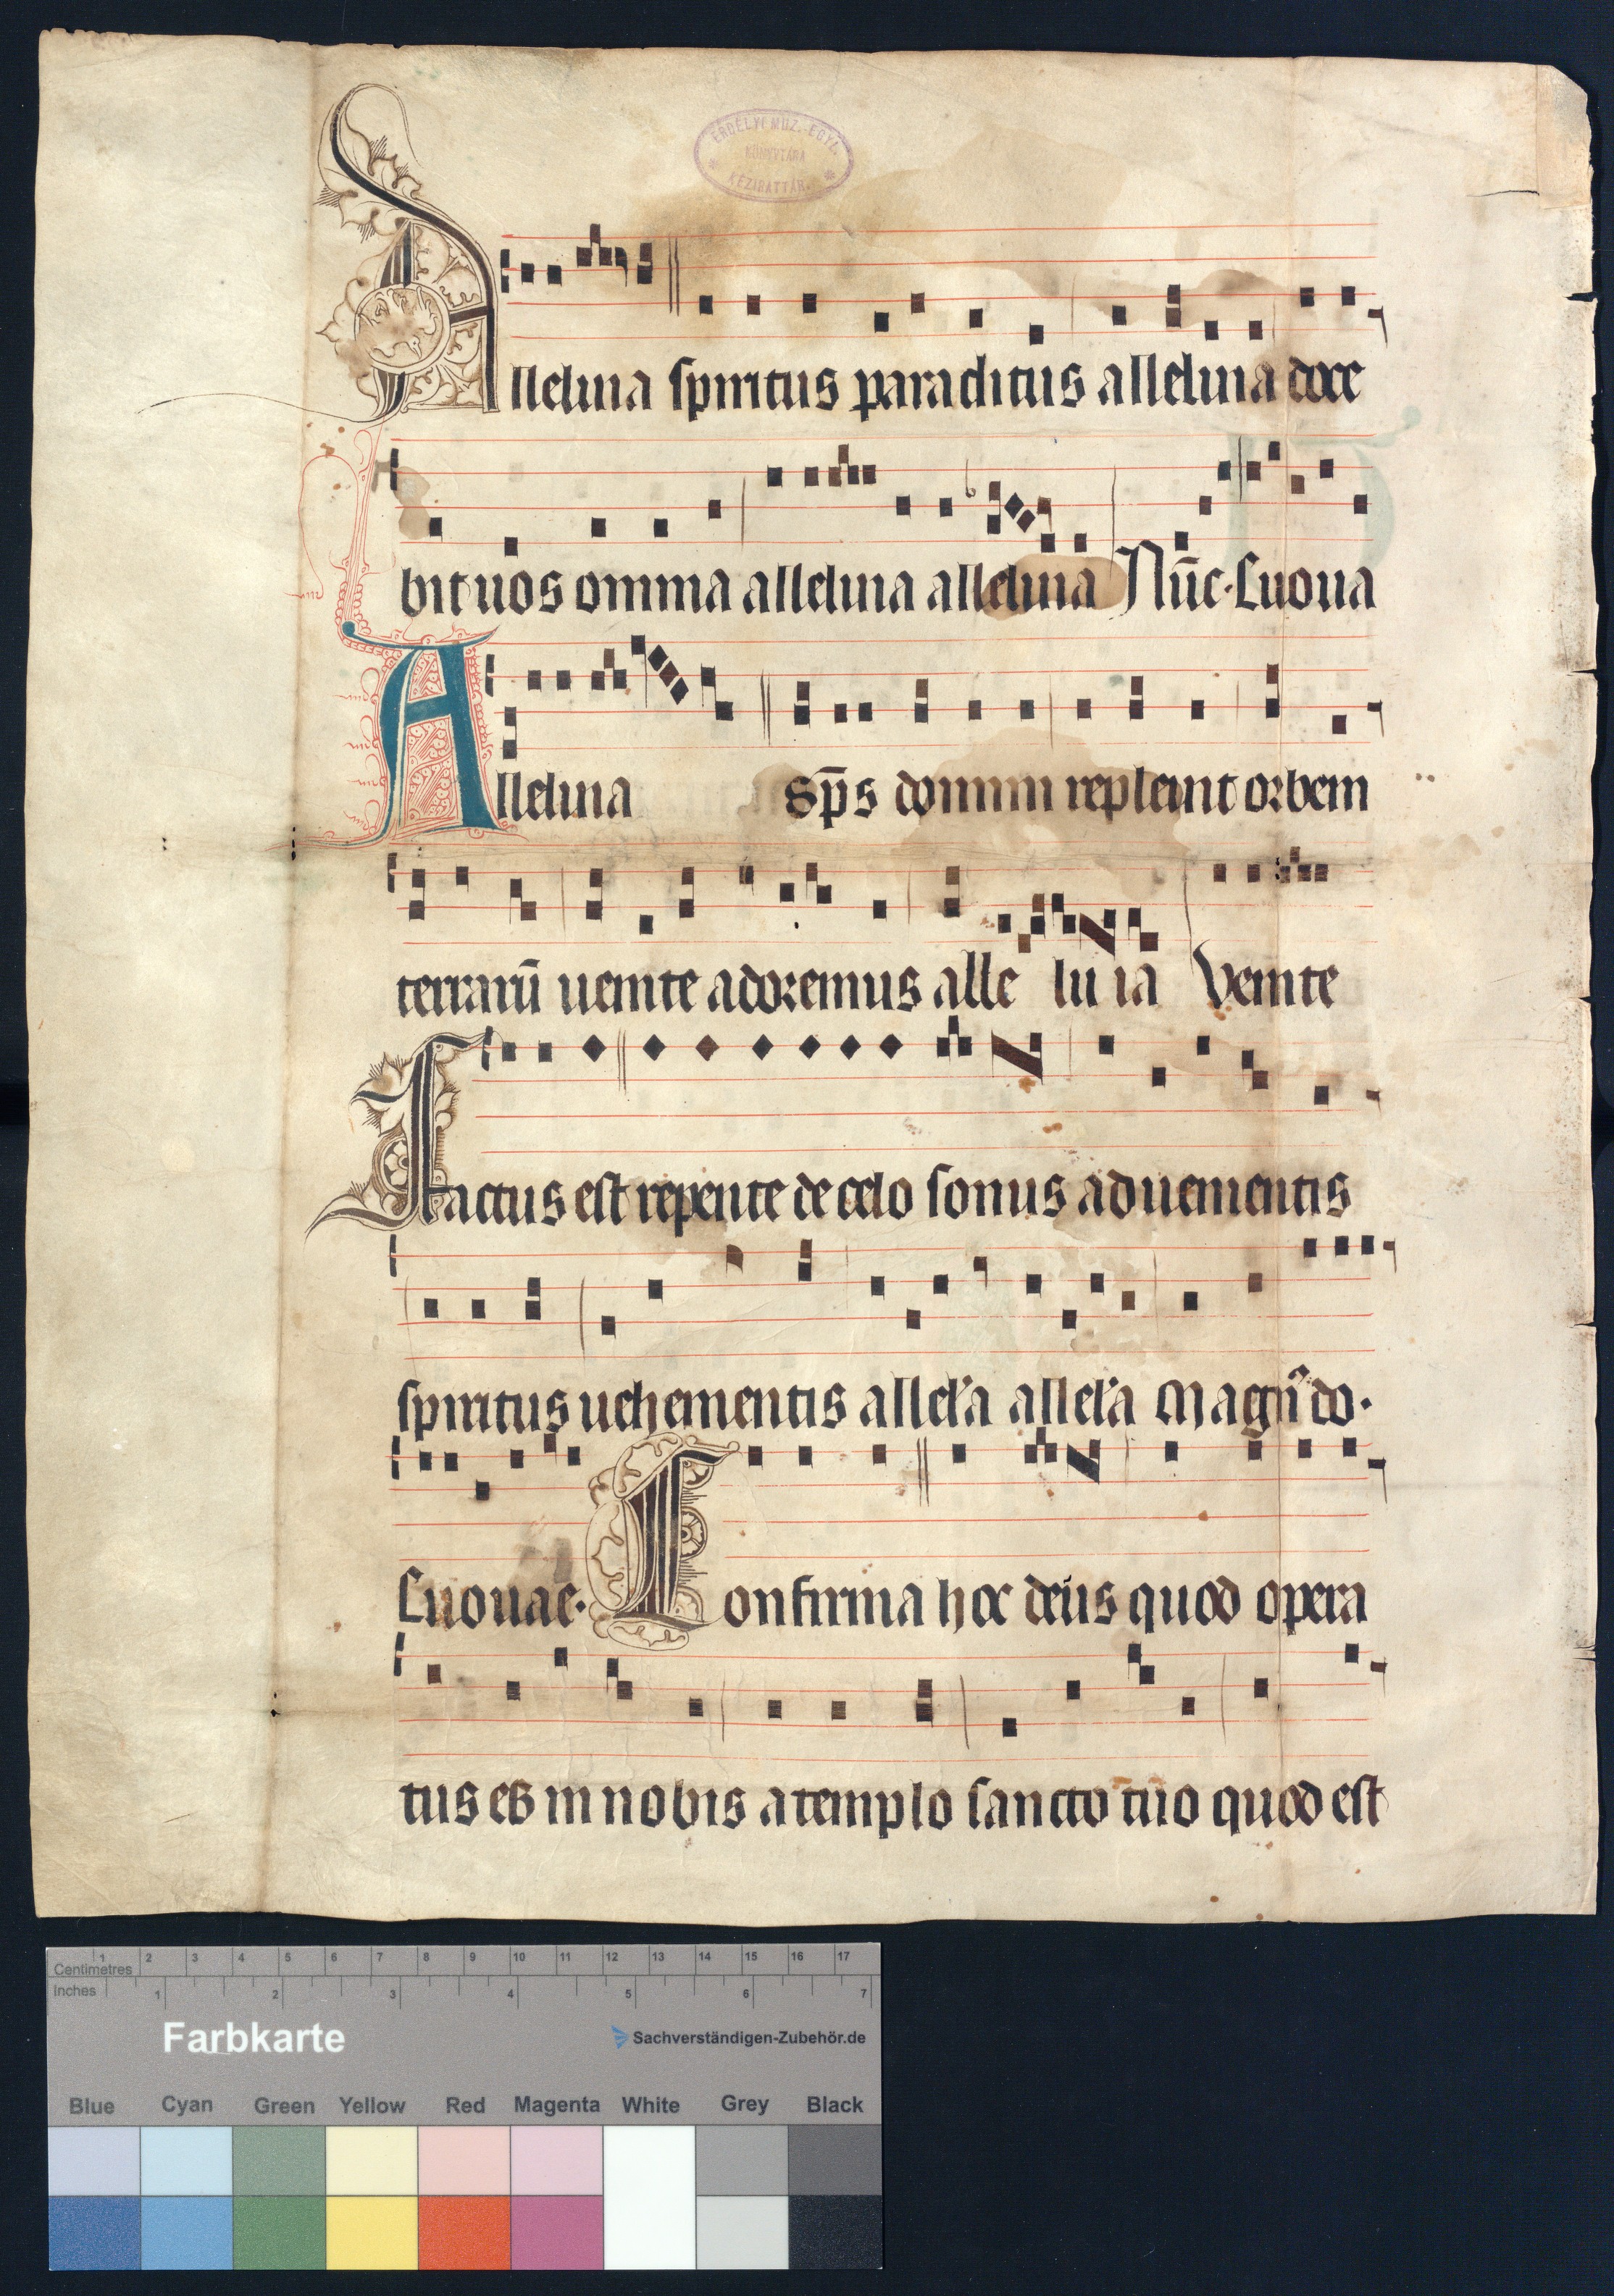 ERDÉLYI MUZ. EGYL.
KÖNYVTÁRA
KÉZIRATTÁR.
Alleluia spiritus paraclitus alleluia doce
bit uos omnia alleluia alleluia Nūc. Euoua
Alleluia Sp̄s domini repleuit orbem
terrarū uenite adoremus alle lu ia Venite
Factus est repente de celo sonus aduenientis
spiritus uehementis allel'a allel'a Magn̄ do.
Euouae. Confirma hoc deus quod opera
tus es in nobis a templo sancto tuo quod est
1 2 3 4 5 6 7 8 9 10 11 12 13 14 15 16 17
Centimetres
Inches
1 2 3 4 5 6 7
Farbkarte
Sachverständigen-Zubehör.de
Blue Cyan Green Yellow Red Magenta White Grey Black